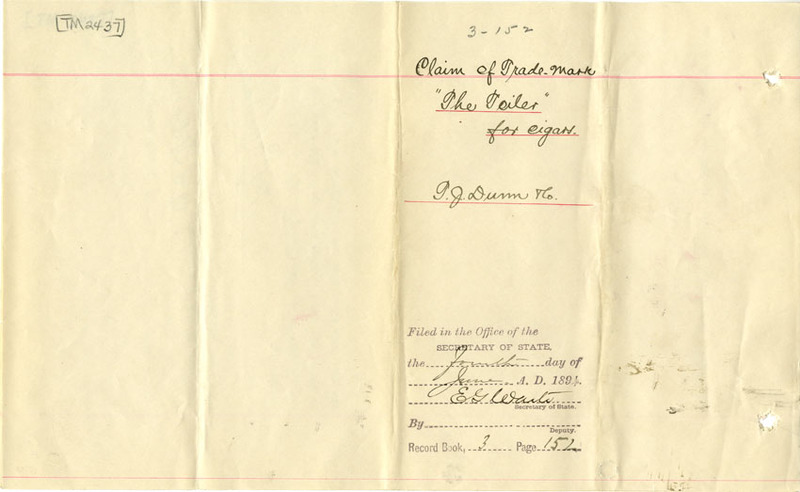 [TM2437]
3-152
Claim of Trade-Mark
"The Toiler"
for cigars.
P. J. Dunn & Co.
Filed in the Office of the
SECRETARY OF STATE,
the Fourth day of
June A. D. 1894.
E. G. Waite
Secretary of State.
By
Deputy.
Record Book, 3 Page 152